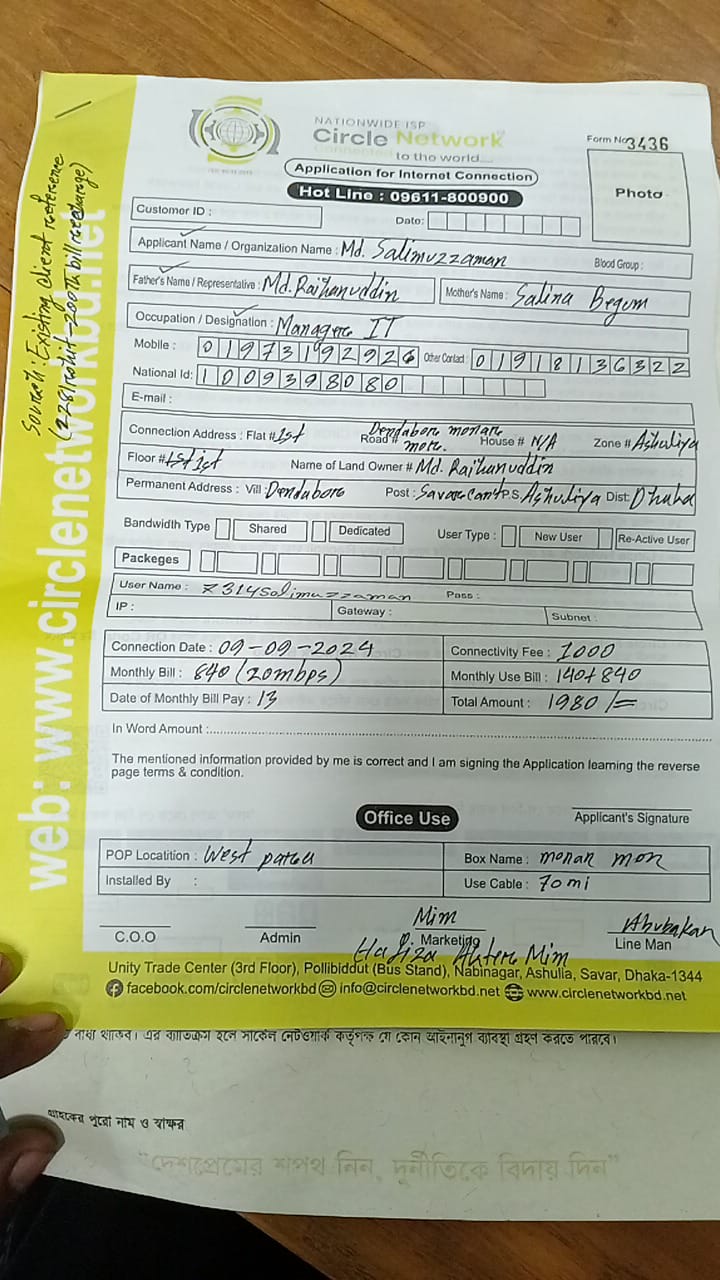 NATIONWIDE ISP
Circle Network
Connected
to the world....
Form No 3436
Application for Internet Connection
Hot Line : 09611-800900
Photo
Customer ID :
Date:
Applicant Name / Organization Name : Md. Salimuzzaman
Blood Group :
Father's Name / Representative : Md. Raihanuddin Mother's Name : Salina Begum
Occupation / Designation : Manager IT
Mobile : 01973192926 Other Contact : 01918136322
National Id: 1009398080
E-mail :
Connection Address : Flat # 1st Road # Dendabore monare more. House # N/A Zone # Ashuliya
Floor # 1st 1st Name of Land Owner # Md. Raihanuddin
Permanent Address : Vill Dendabore Post : Savar Cant P.S Ashuliya Dist: Dhaka
Bandwidth Type Shared Dedicated User Type : New User Re-Active User
Packeges
User Name : 7314salimuzzaman Pass :
IP : Gateway : Subnet :
Connection Date : 09-09-2024 Connectivity Fee : 1000
Monthly Bill : 840 (20mbps) Monthly Use Bill : 140+840
Date of Monthly Bill Pay : 13 Total Amount : 1980/=
In Word Amount :
The mentioned information provided by me is correct and I am signing the Application learning the reverse
page terms & condition.
Applicant's Signature
Office Use
POP Locatition : West para Box Name : monar mor
Installed By : Use Cable : 70mi
Mim Abubakar
C.O.O Admin Marketing Line Man
Hafiza Aktere Mim
Unity Trade Center (3rd Floor), Pollibiddut (Bus Stand), Nabinagar, Ashulia, Savar, Dhaka-1344
facebook.com/circlenetworkbd info@circlenetworkbd.net www.circlenetworkbd.net
web: www.circlenetworkbd.net
Existing client reference
বাধ্য থাকিব। এর ব্যতিক্রম হলে সার্কেল নেটওয়ার্ক কর্তৃপক্ষ যে কোন আইনানুগ ব্যবস্থা গ্রহণ করতে পারবে।
গ্রাহকের পুরো নাম ও স্বাক্ষর
"দেশপ্রেমের শপথ নিন, দুর্নীতিকে বিদায় দিন"